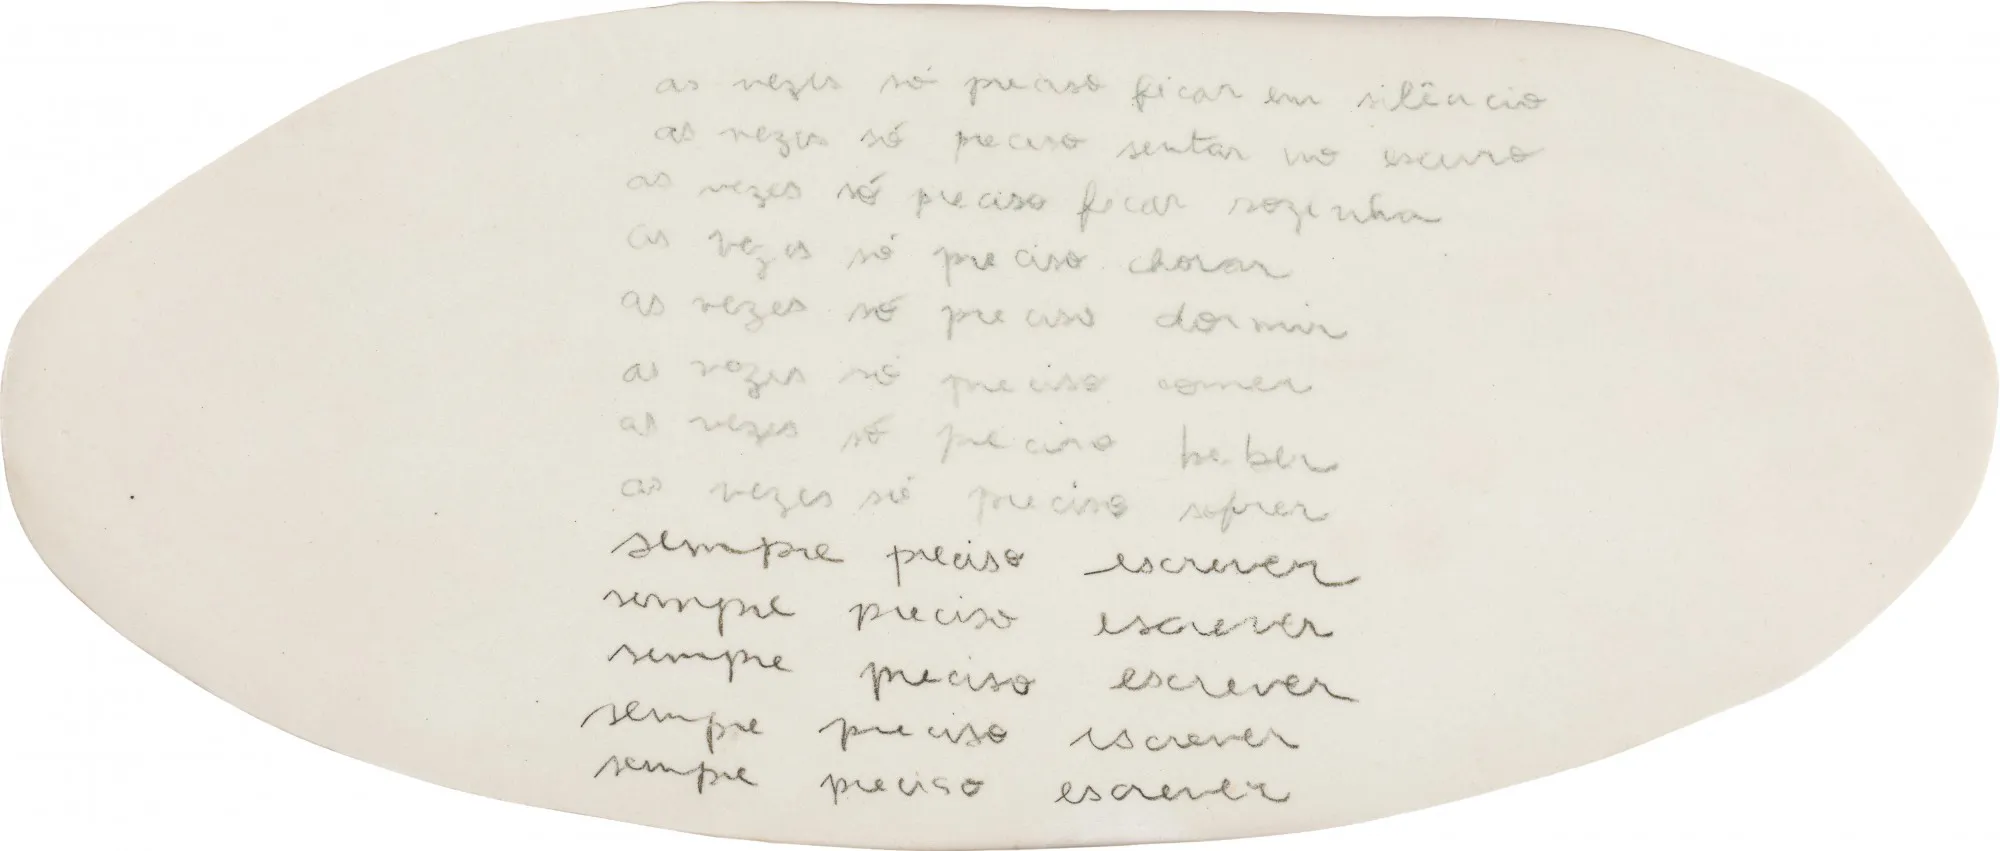 as vezes só preciso ficar em silêncio
as vezes só preciso sentar no escuro
as vezes só preciso ficar sozinha
as vezes só preciso chorar
as vezes só preciso dormir
as vezes só preciso comer
as vezes só preciso beber
as vezes só preciso sofrer
sempre preciso escrever
sempre preciso escrever
sempre preciso escrever
sempre preciso escrever
sempre preciso escrever